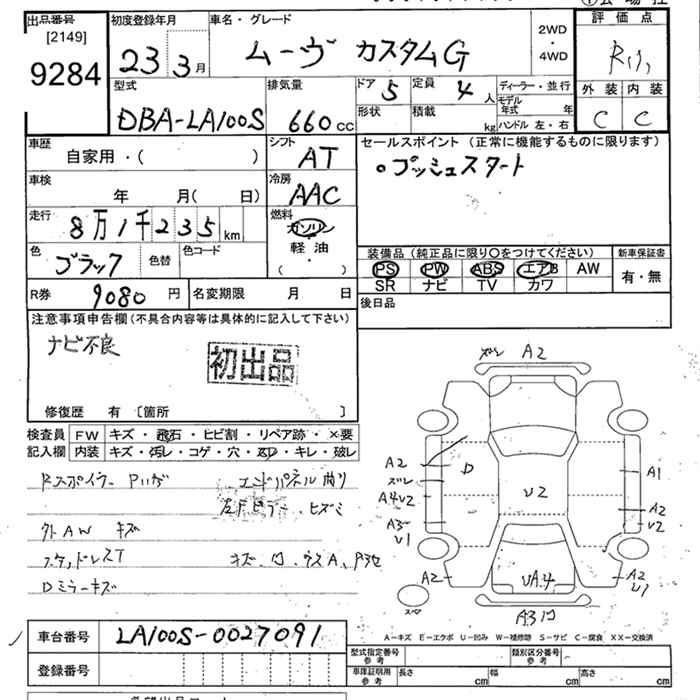 出品番号
[2149]
9284
初度登録年月
23 3月
車名・グレード
ムーヴ カスタムG
2WD
・
4WD
評価点
R
外装 内装
C C
型式
DBA-LA100S
排気量
660cc
ドア 5
定員 4人
形状
積載 kg
ディーラー・並行
モデル年式 年
ハンドル 左・右
車歴
自家用・( )
シフト
AT
セールスポイント (正常に機能するものに限ります)
○プッシュスタート
車検
年 月(日)
冷房
AAC
走行
8万1千235km
燃料
ガソリン
軽・油
( ・ )
色
ブラック
色替
色コード
装備品(純正品に限り○をつけてください)
PS PW ABS エアB AW
SR ナビ TV カワ
新車保証書
有・無
R券
9080円
名変期限 月 日
後日品
注意事項申告欄(不具合内容等は具体的に記入して下さい)
ナビ不良
初出品
修復歴 有 [箇所 ]
検査員記入欄
FW キズ・飛石・ヒビ割・リペア跡・×要
内装 キズ・汚レ・コゲ・穴・・キレ・破レ
Rスポイラー
エンドパネル曲り
左Fピラー、ヒズミ
外AW キズ
キズ、凹、ウスA
Dミラーキズ
ズレ A2
A2
ズレ
A4U2
A3
U1
A2
D
U2
A1
A2
U2
UA4
A2
U1
A3凹
A-キズ E-エクボ U-凹み W-補修跡 S-サビ C-腐食 XX-交換済
車台番号
LA100S-0027091
登録番号
型式指定番号
参考
類別区分番号
参考
車庫証明用
参考
長さ cm
幅 cm
高さ cm